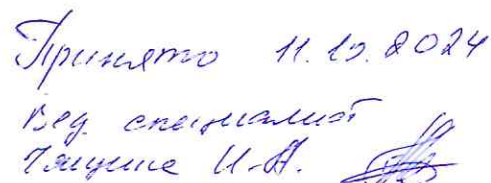 Принято 11.10.2024
Вед. специалист
И.А.